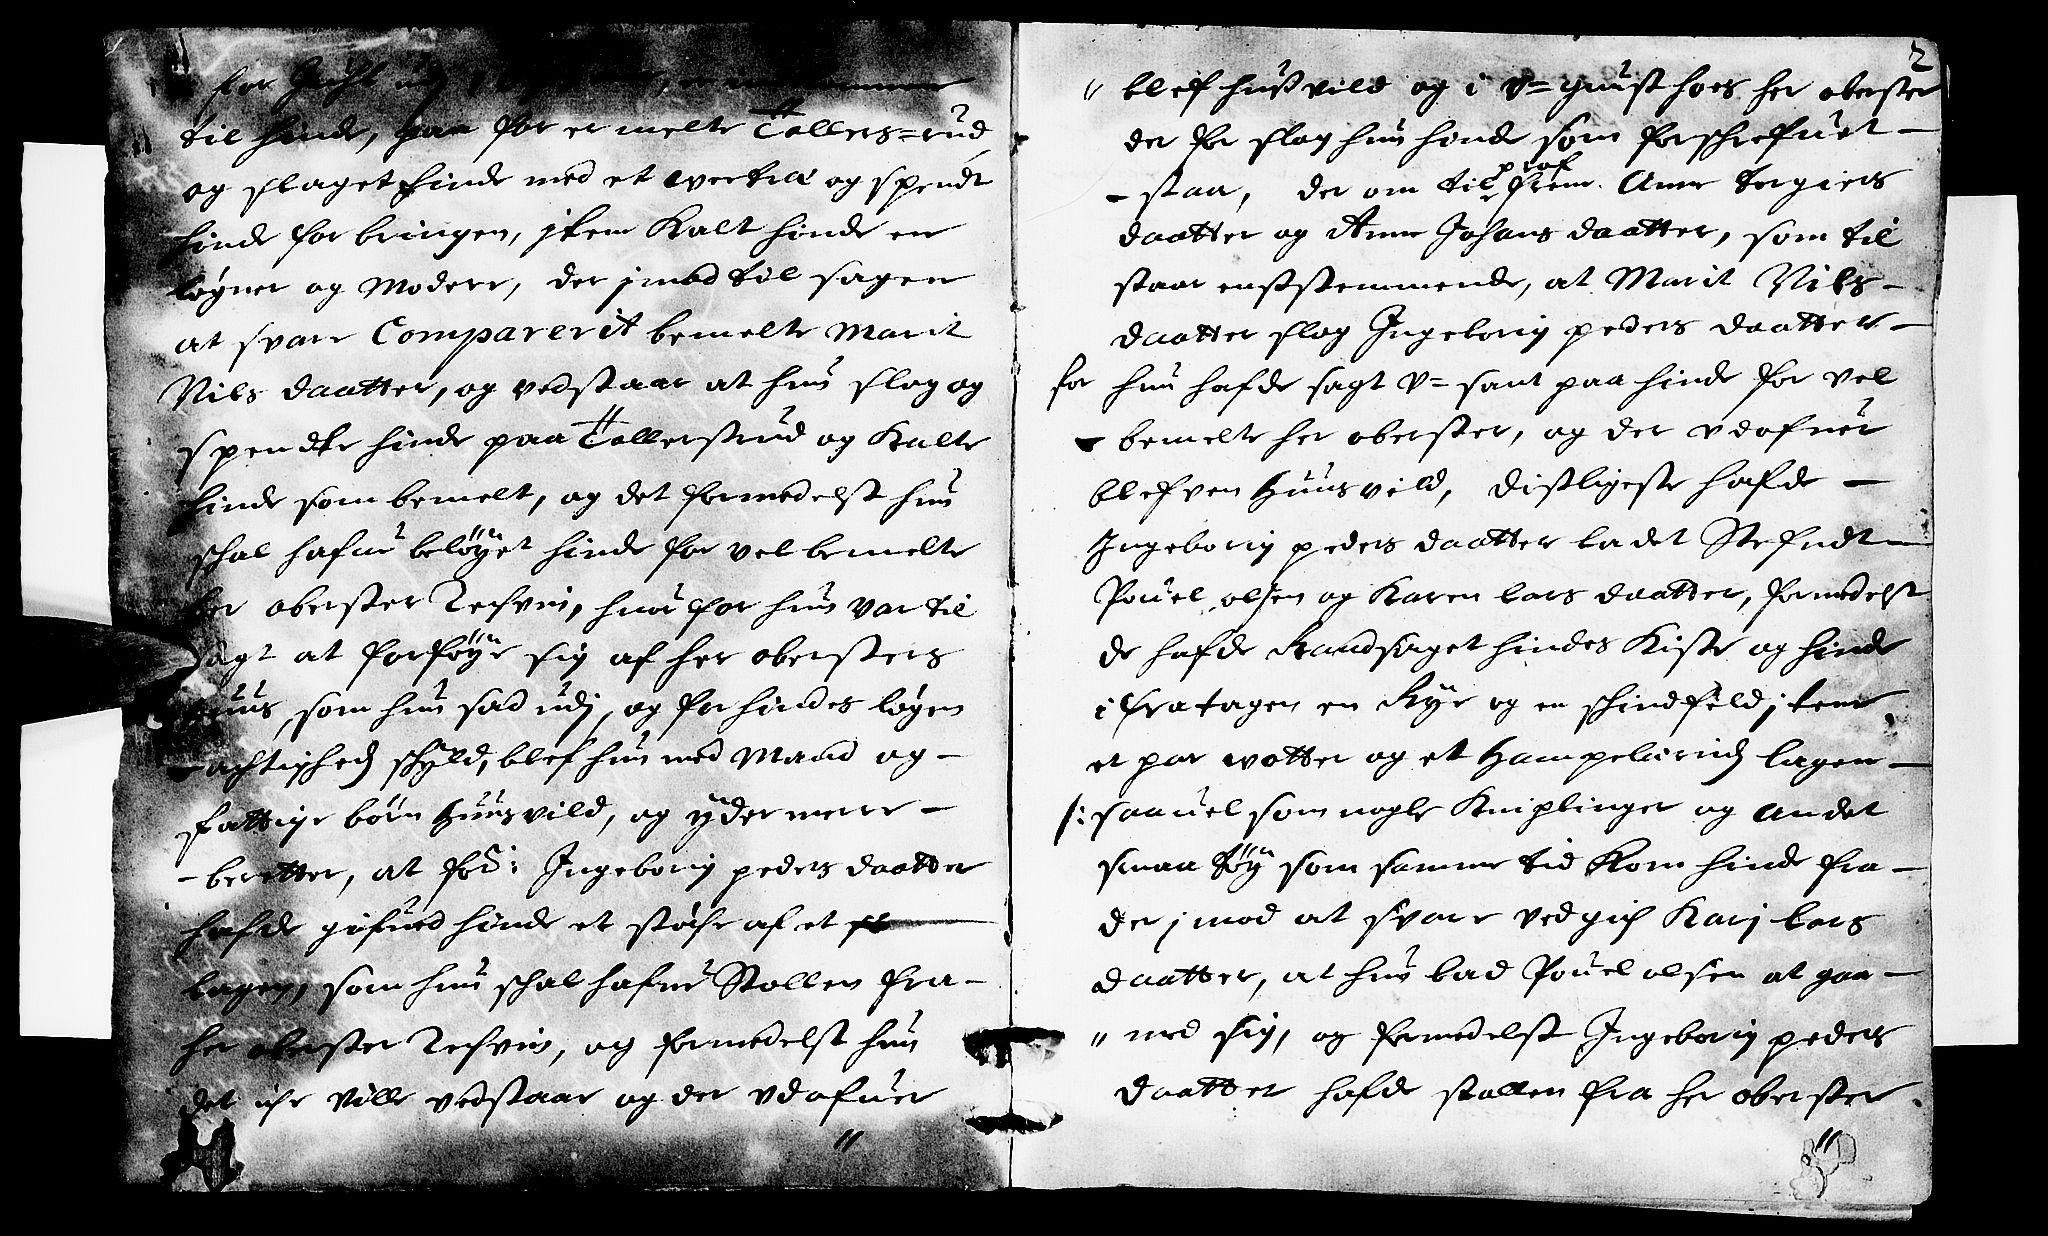 til hinde, paa for er melte Tollers=rud
og slaget hinde med et vertræ og spendt
hinde for bringen, jtem Kalt hinde en
løgner og Moderr, der jmod til sagen
at svare Comparerit bemelte Marit
Nils daatter, og vedstaar at hun slog og
spendte hinde paa Tollerstrud og Kalte
hinde som bemelt, og det formedelst hun
schal hafue beløyet hinde for vel bemelte
her oberster huor for hun var til
sagt at forføye sig af her obersters
huus, som hun sad udj, og for hindes løgen
-achtighed schyld, blef hun med Mand og-
fattige børn huusvild, og yder mere-
-beretter, at for: Ingeborig peders daatter
hafde gifued hinde et støche af et
lagen, som hun schal hafue Stollen fra-
her oberster og formedelst hun
det iche ville vedstaar og der vdofuer
"
2
" blef husvild og i V=gunst hoes her oberster
der for slog hun hinde som forschrefuet-
-staar, der om til prof frem. Anne Torgiers
daatter og Anne Johans daatter, som til
staar enststemmende, at Marit Nils-
daatter slog Ingeborig peders daatter-
for hun hafde sagt V=sant paa hinde for vel
- bemelte her oberster, og der vdofuer
blefven huusvild, disligeste hafde -
Ingeborig peders daatter ladet Stefndt-
Pouel olsen og Karen lars daatter, formedelst
de hafde Randsaget hindes Kiste og hinde
ifratagen en Rye og en schindfeld jtem
et par votter og et Hampelerids lagen-
/: saauel som nogle Kniplinger og andet
smaa tøy som samme tid Kom hinde fra-
der jmod at svare vedgich Karj lars
daatter, at hun bad Pouel olsen at gaa-
" med sig, og formedelst Ingeborig peders
daatter hafde stollen fra her oberster.
"